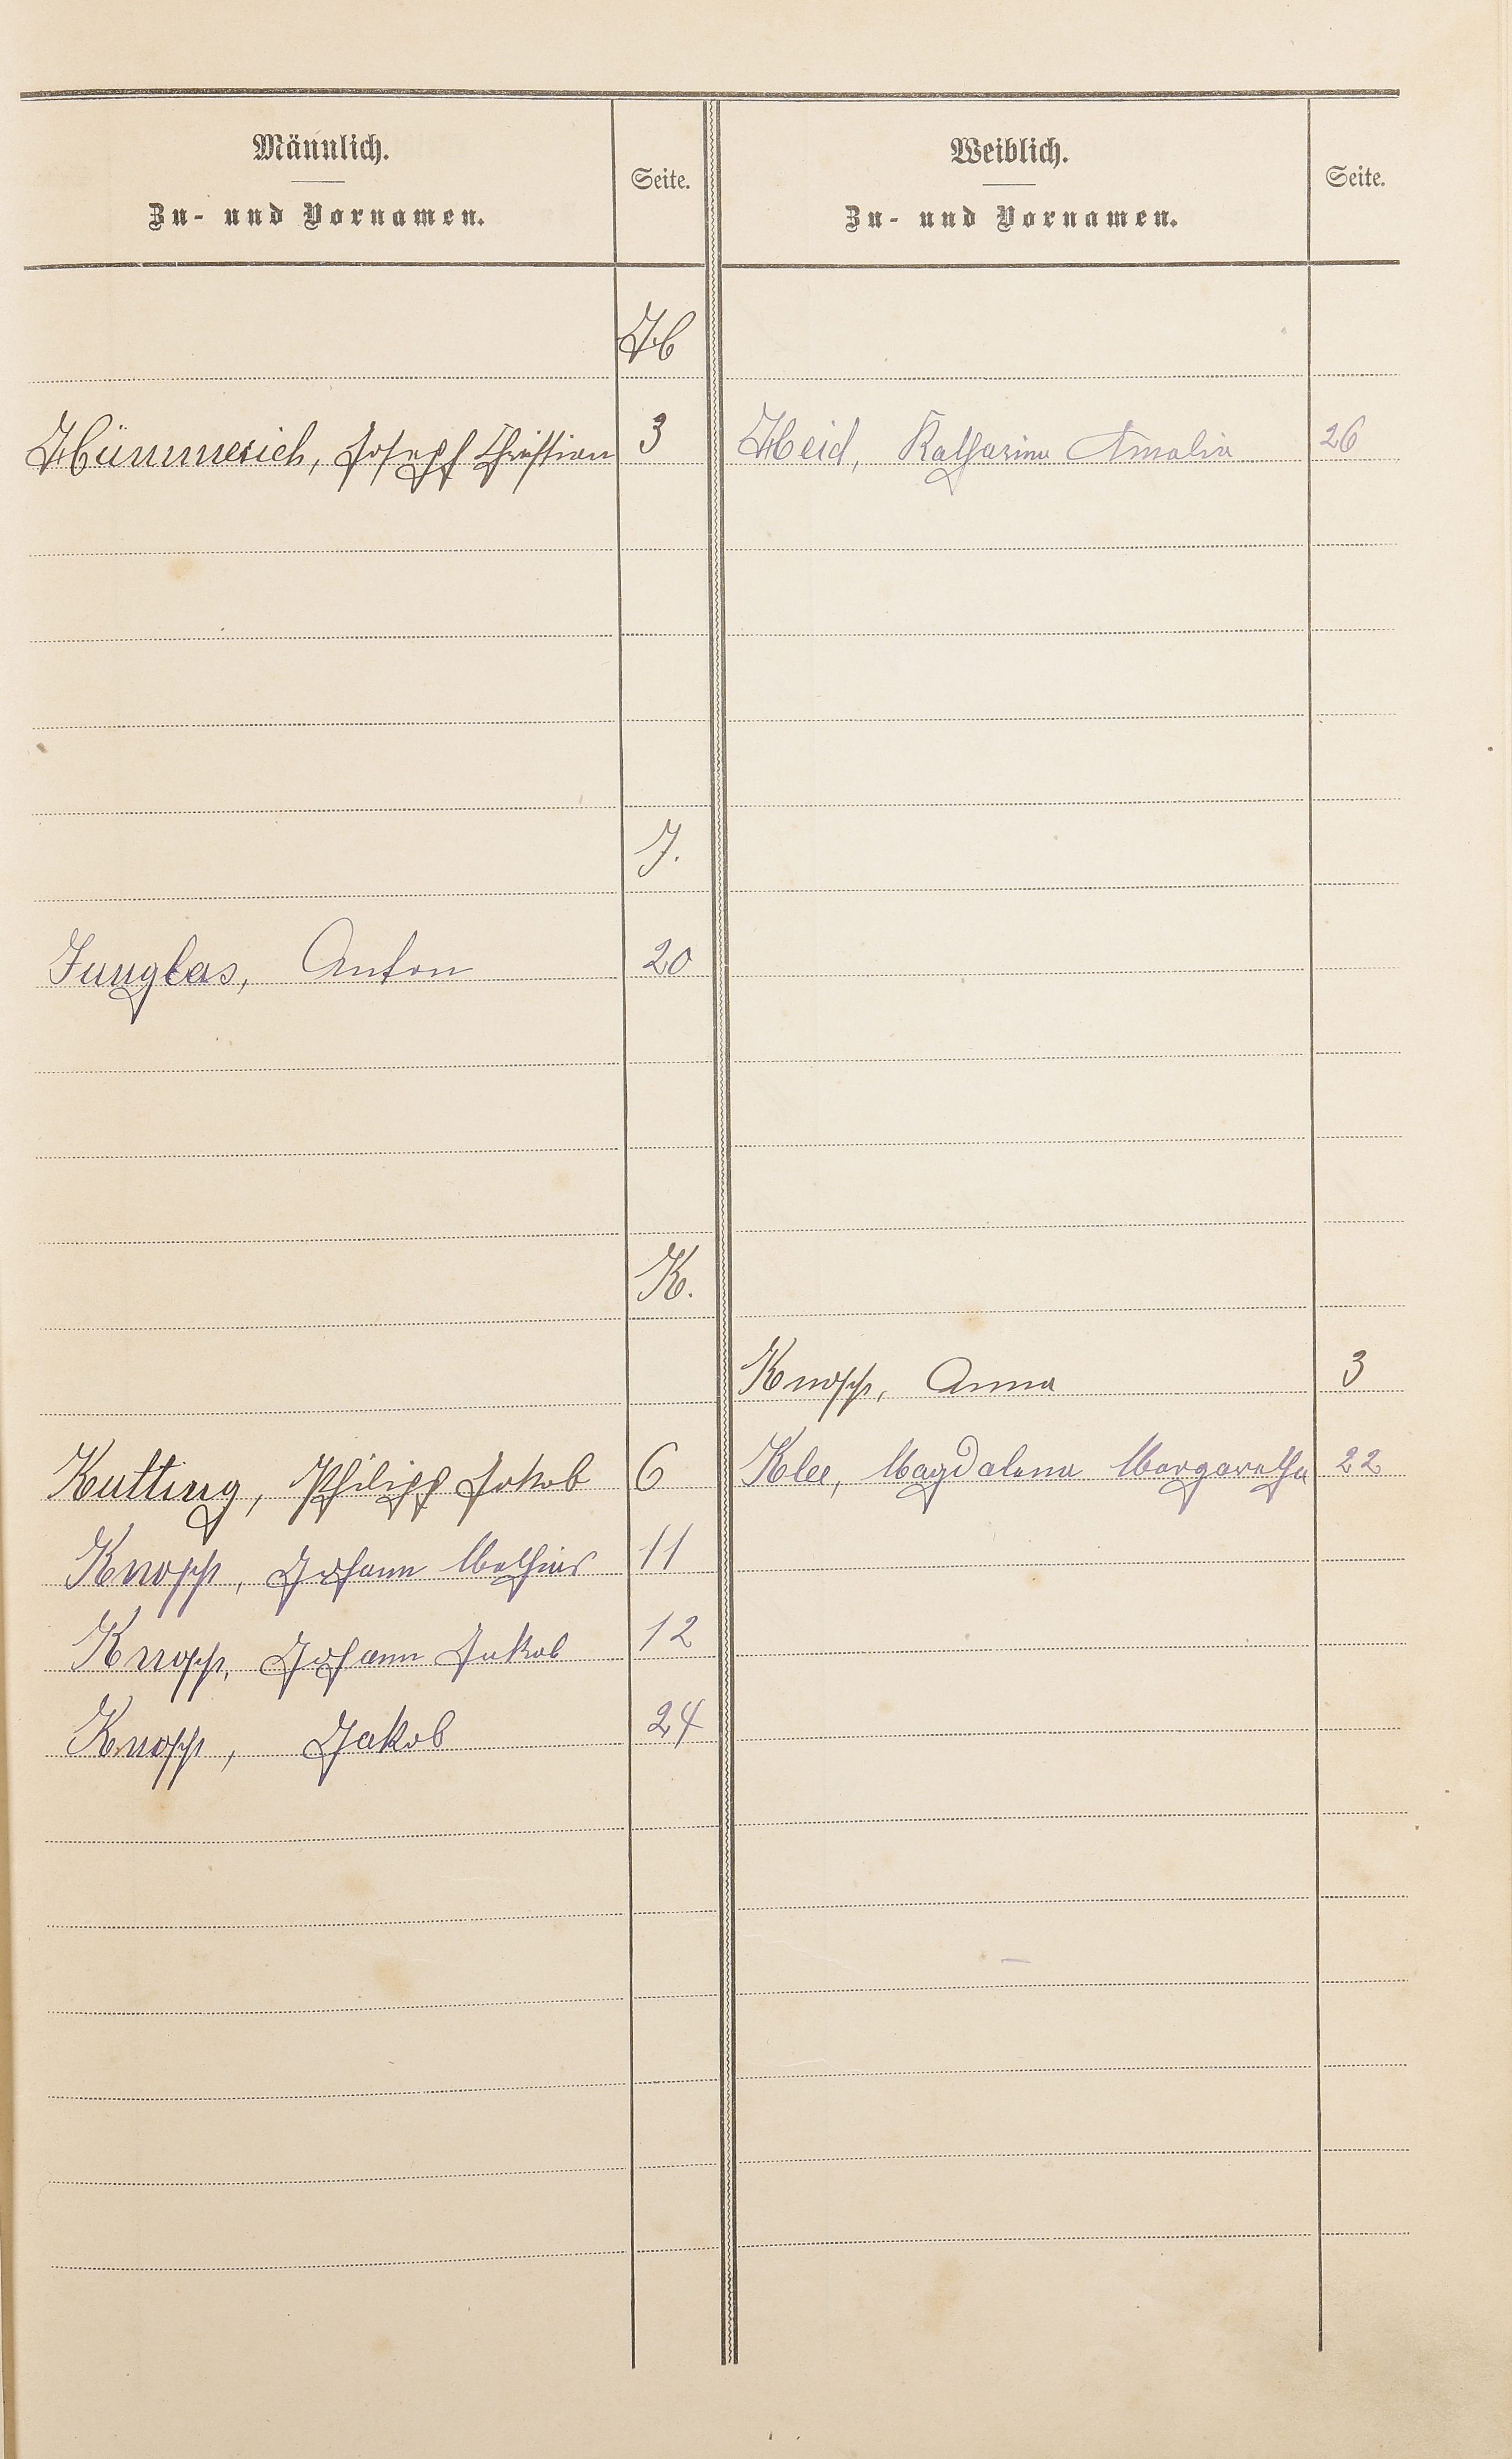 Männlich.
Zu- und Vornamen.
Seite.
Weiblich.
Zu- und Vornamen.
Seite.
H
Hümmerich, Joseph Christian 3 Heid, Katharina Amalia 26
J.
Junglas, Anton 20
K.
Knopp, Anna 3
Kutting, Philipp Jakob 6 Klee, Magdalena Margaretha 22
Knopp, Johann Mathias 11
Knopp, Johann Jakob 12
Knopp, Jakob 24